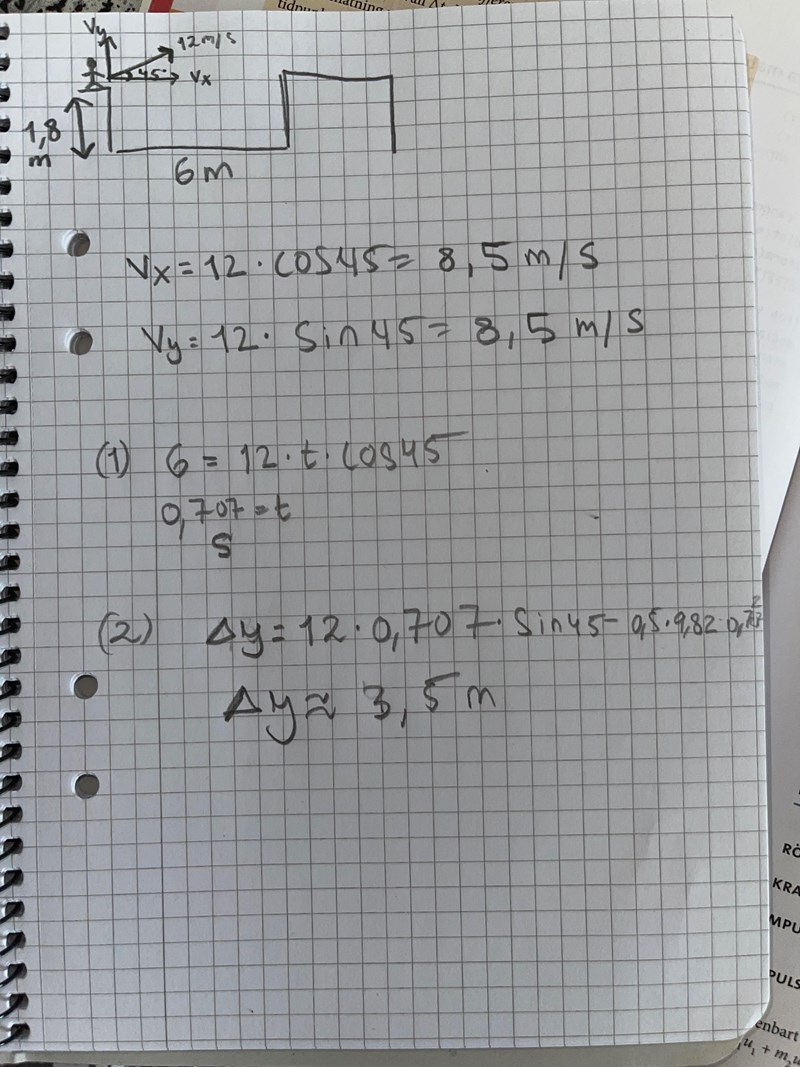 Vy
12 m/s
45°
Vx
1,8
m
6 m
Vx = 12 · cos45 = 8,5 m/s
Vy = 12 · sin45 = 8,5 m/s
(1) 6 = 12 · t · cos45
0,707 = t
s
(2) Δy = 12 · 0,707 · sin45 - 0,5 · 9,82 · 0,707²
Δy ≈ 3,5 m
RÖ
KRA
MPU
PULS
enbart
u₁ + m₂u